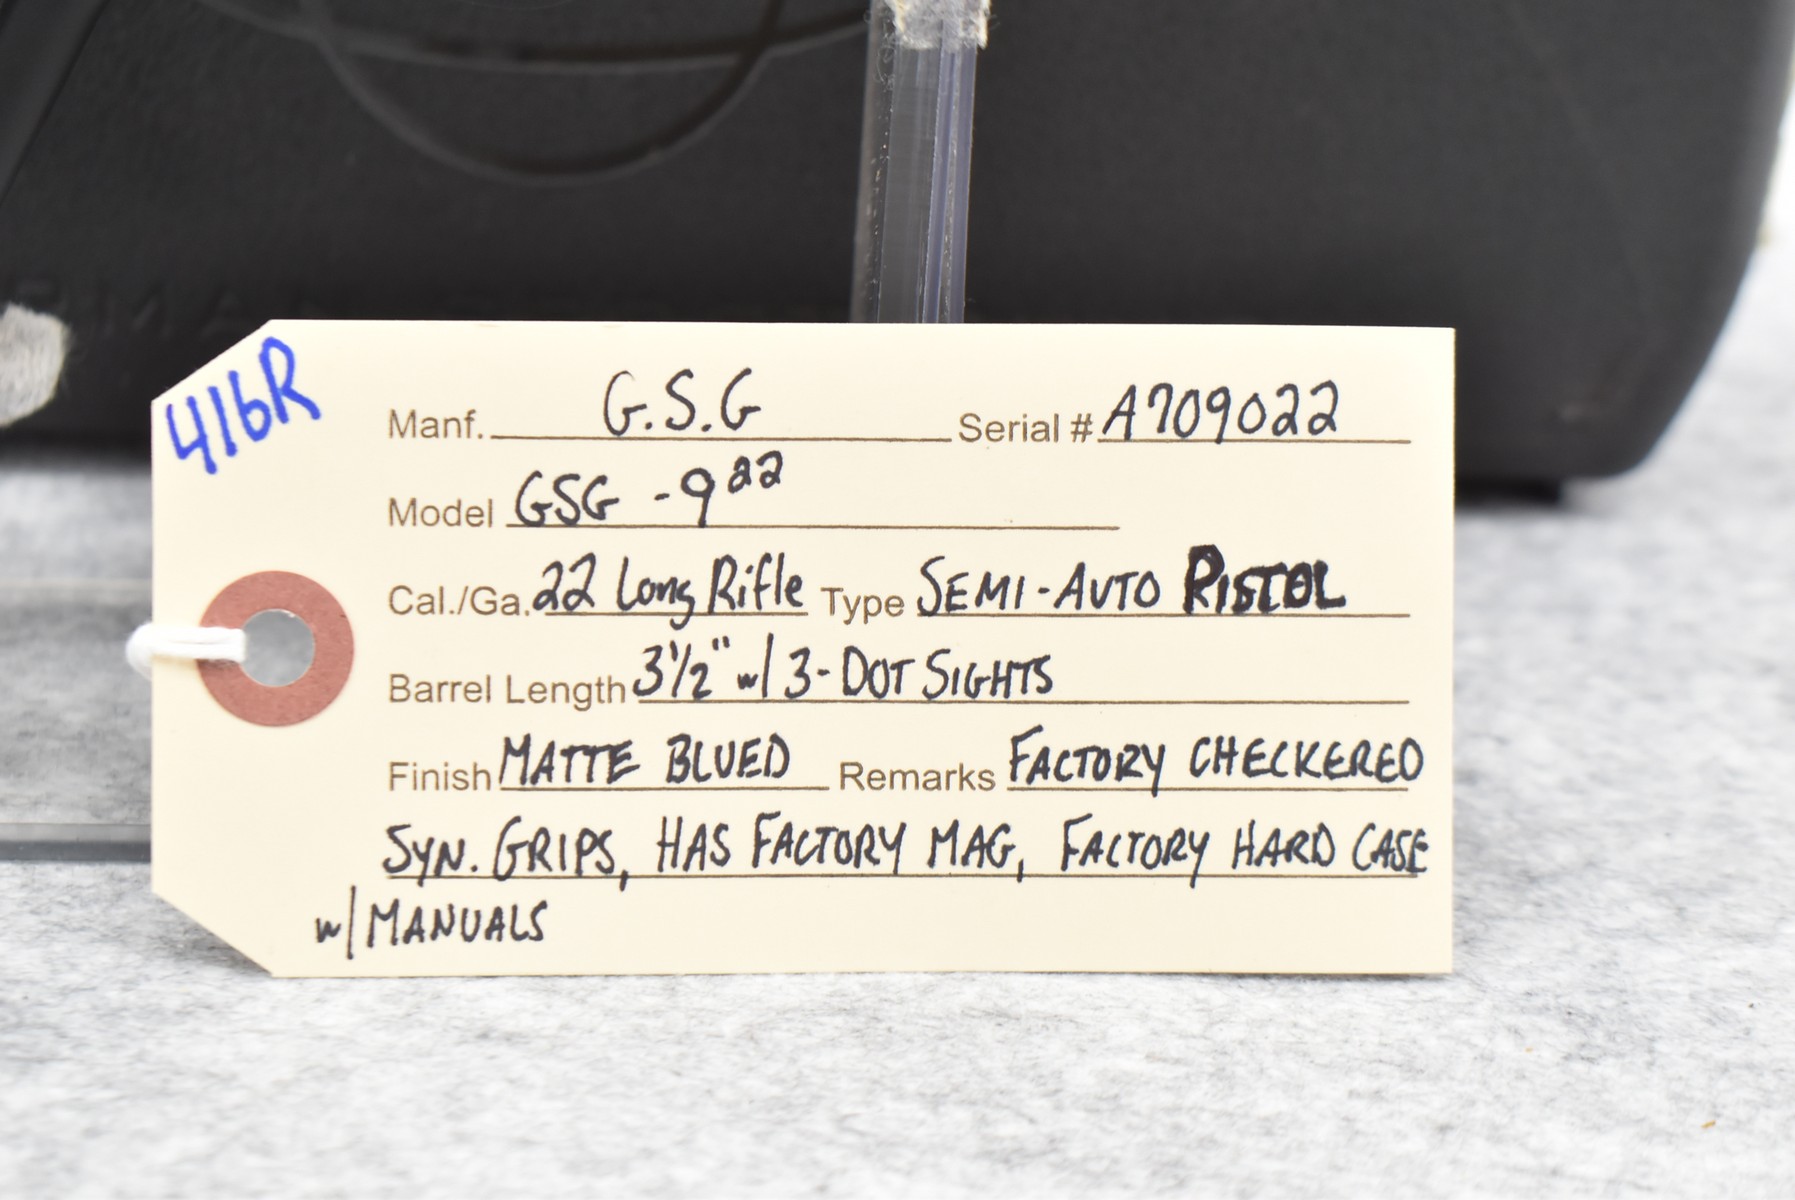 416R
Manf. G.S.G Serial # A709022
Model GSG -9 22
Cal./Ga. 22 Long Rifle Type SEMI-AUTO PISTOL
Barrel Length 3 1/2" w/ 3-DOT SIGHTS
Finish MATTE BLUED Remarks FACTORY CHECKERED
SYN. GRIPS, HAS FACTORY MAG, FACTORY HARD CASE
w/ MANUALS